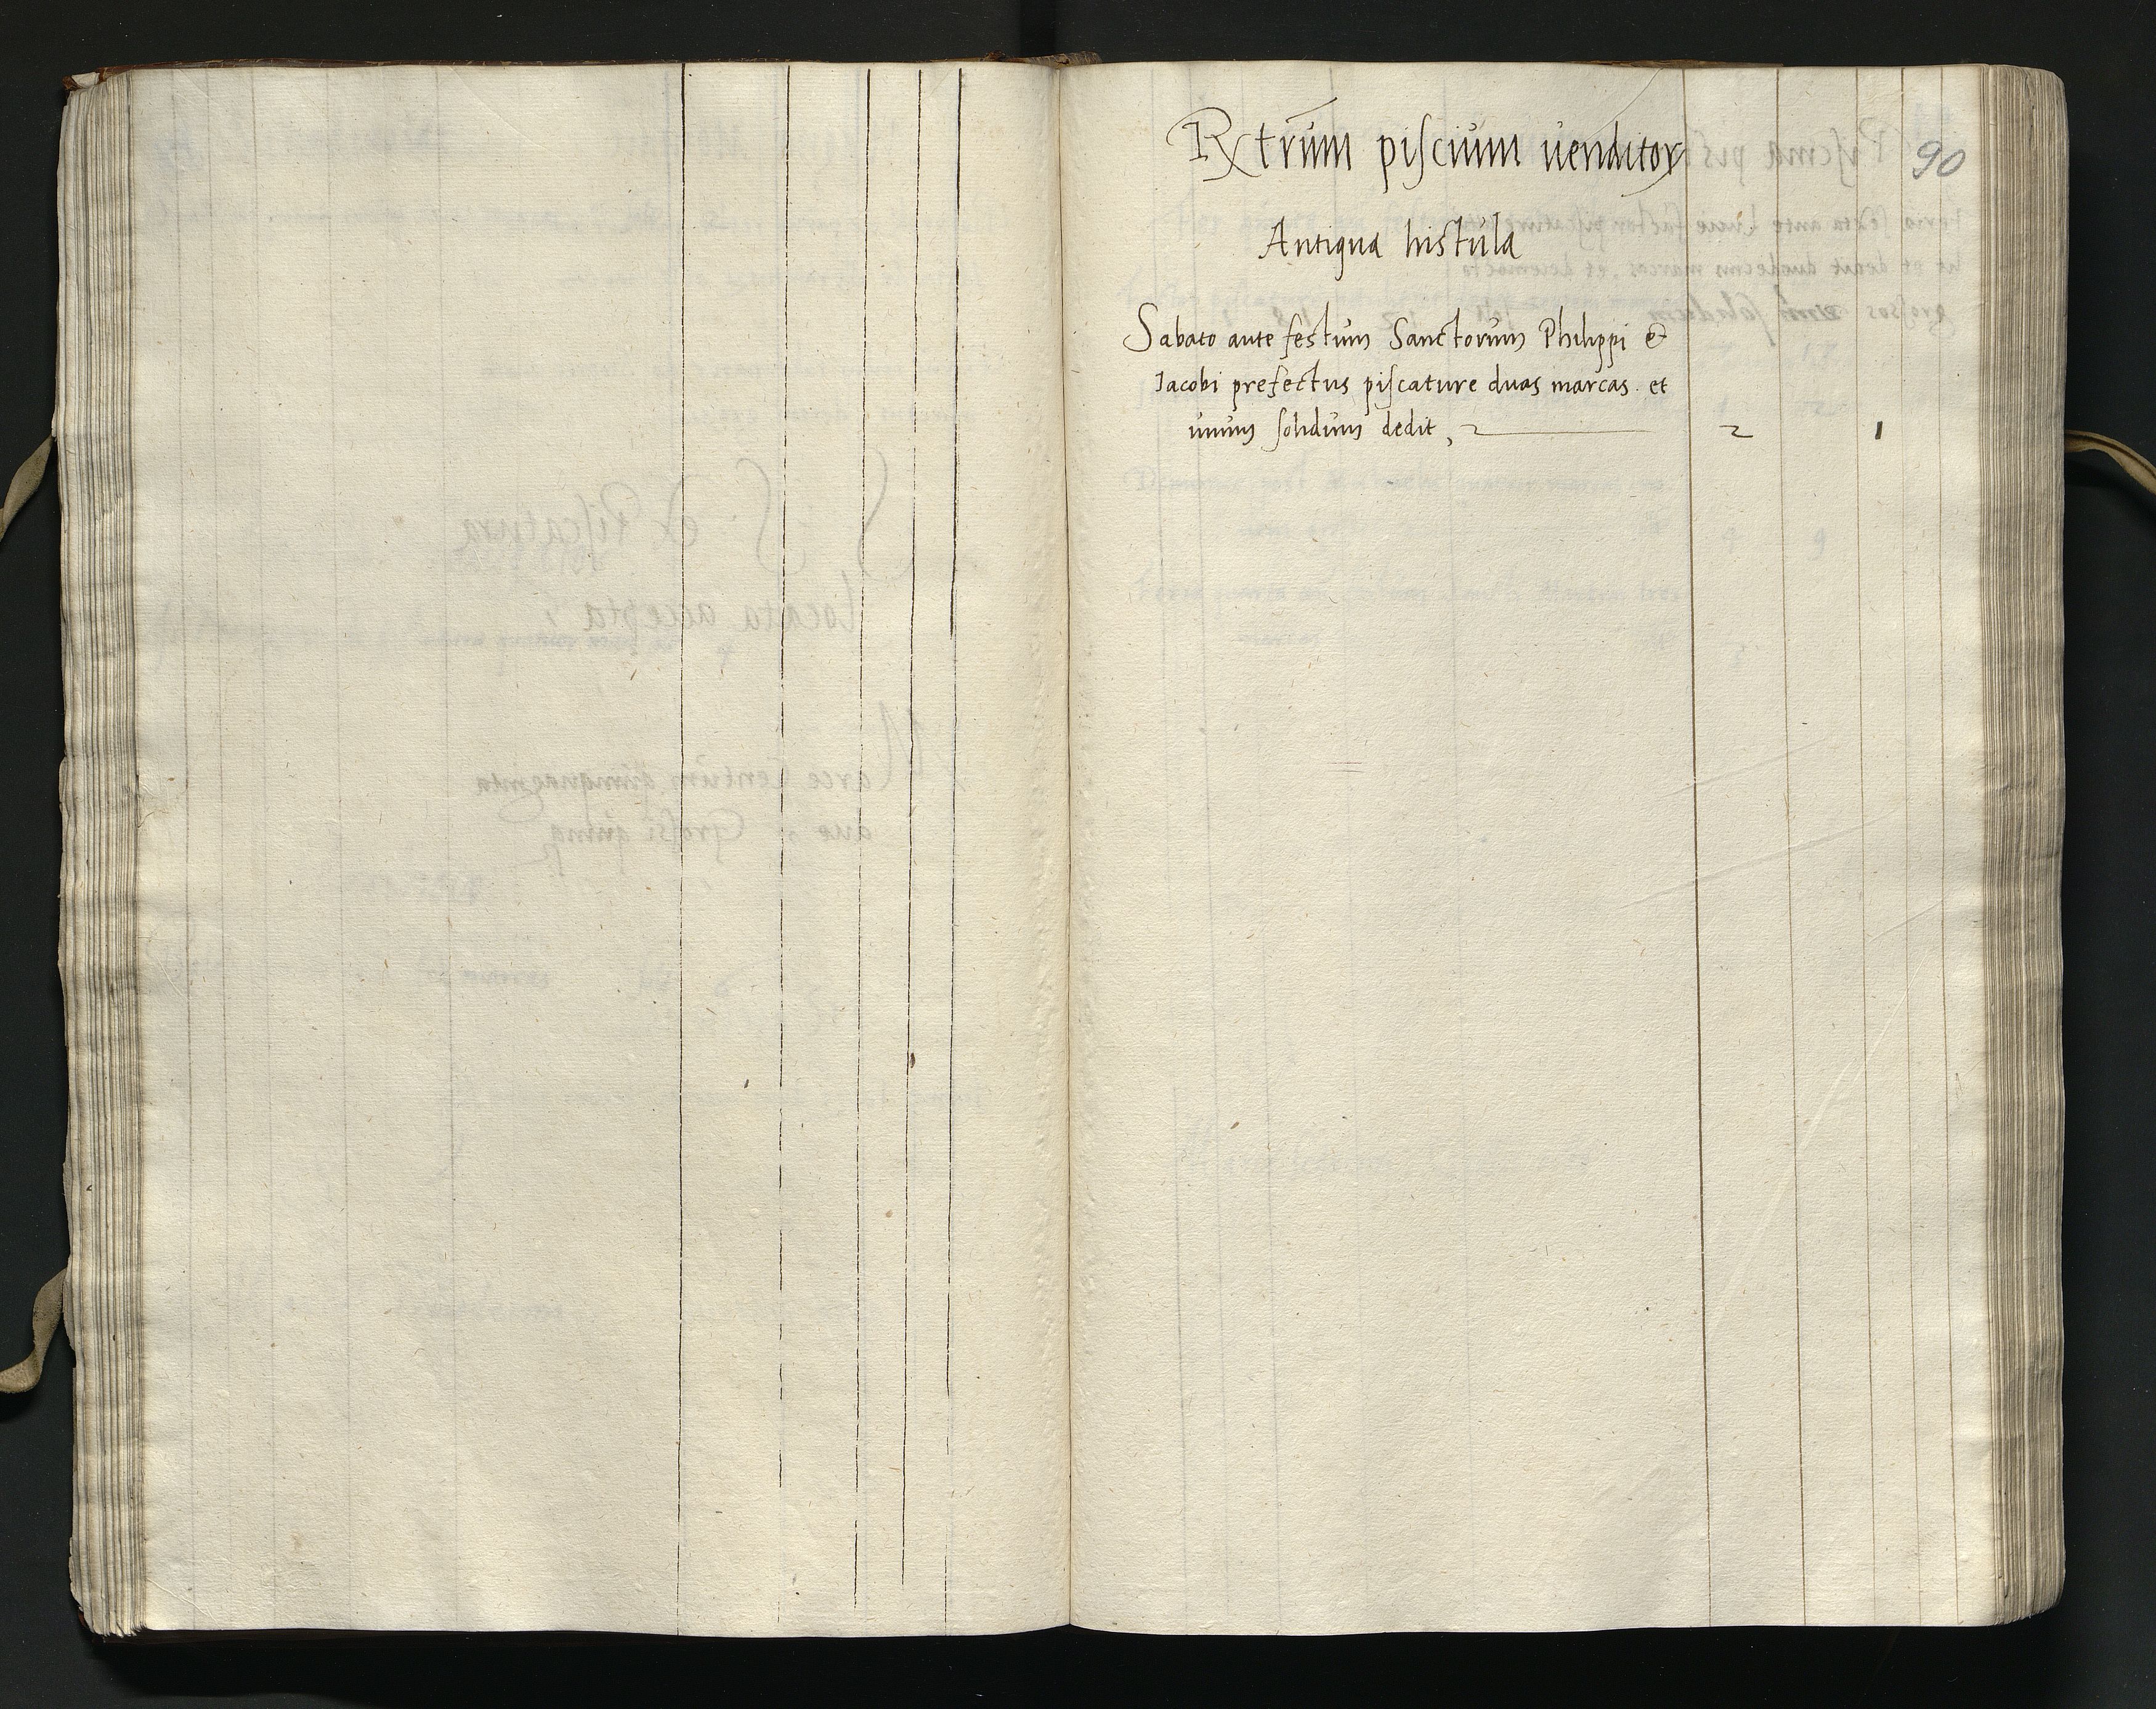 90
Rxtrum piscium uenditor
Antiqua histula
Sabato ante festum Sanctorum Philippi et
Jacobi prefectus piscature duas marcas et
unum solidum dedit, 2 1